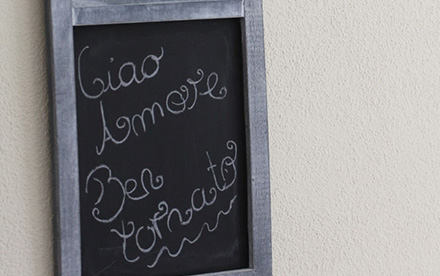 Ciao
Amore
Ben
tornato